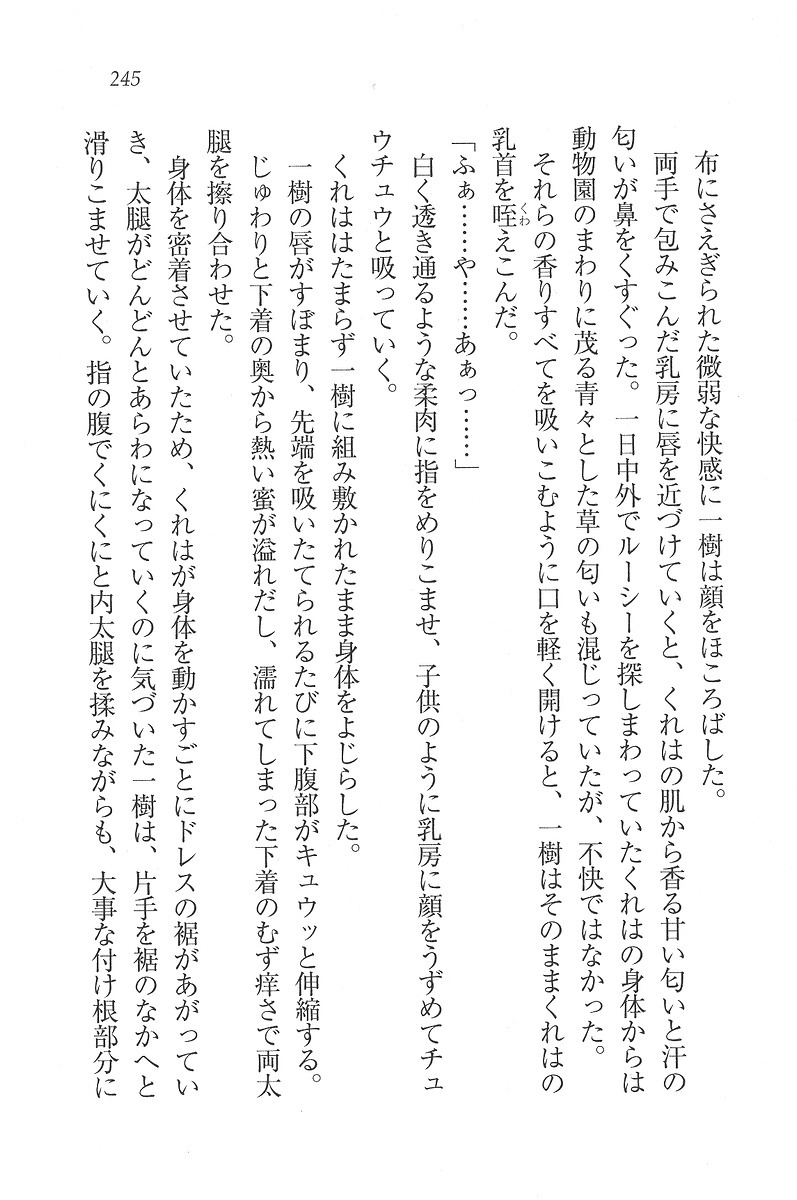 245
布にさえぎられた微弱な快感に一樹は顔をほころばした。
両手で包みこんだ乳房に唇を近づけていくと、くれはの肌から香る甘い匂いと汗の
匂いが鼻をくすぐった。一日中外でルーシーを探しまわっていたくれはの身体からは
動物園のまわりに茂る青々とした草の匂いも混じっていたが、不快ではなかった。
それらの香りすべてを吸いこむように口を軽く開けると、一樹はそのままくれはの
乳首を咥えこんだ。
「ふぁ……や……あぁっ……」
白く透き通るような柔肉に指をめりこませ、子供のように乳房に顔をうずめてチュ
ウチュウと吸っていく。
くれははたまらず一樹に組み敷かれたまま身体をよじらした。
一樹の唇がすぼまり、先端を吸いたてられるたびに下腹部がキュウッと伸縮する。
じゅわりと下着の奥から熱い蜜が溢れだし、濡れてしまった下着のむず痒さで両太
腿を擦り合わせた。
身体を密着させていたため、くれはが身体を動かすごとにドレスの裾があがってい
き、太腿がどんどんとあらわになっていくのに気づいた一樹は、片手を裾のなかへと
滑りこませていく。指の腹でくにくにと内太腿を揉みながらも、大事な付け根部分に